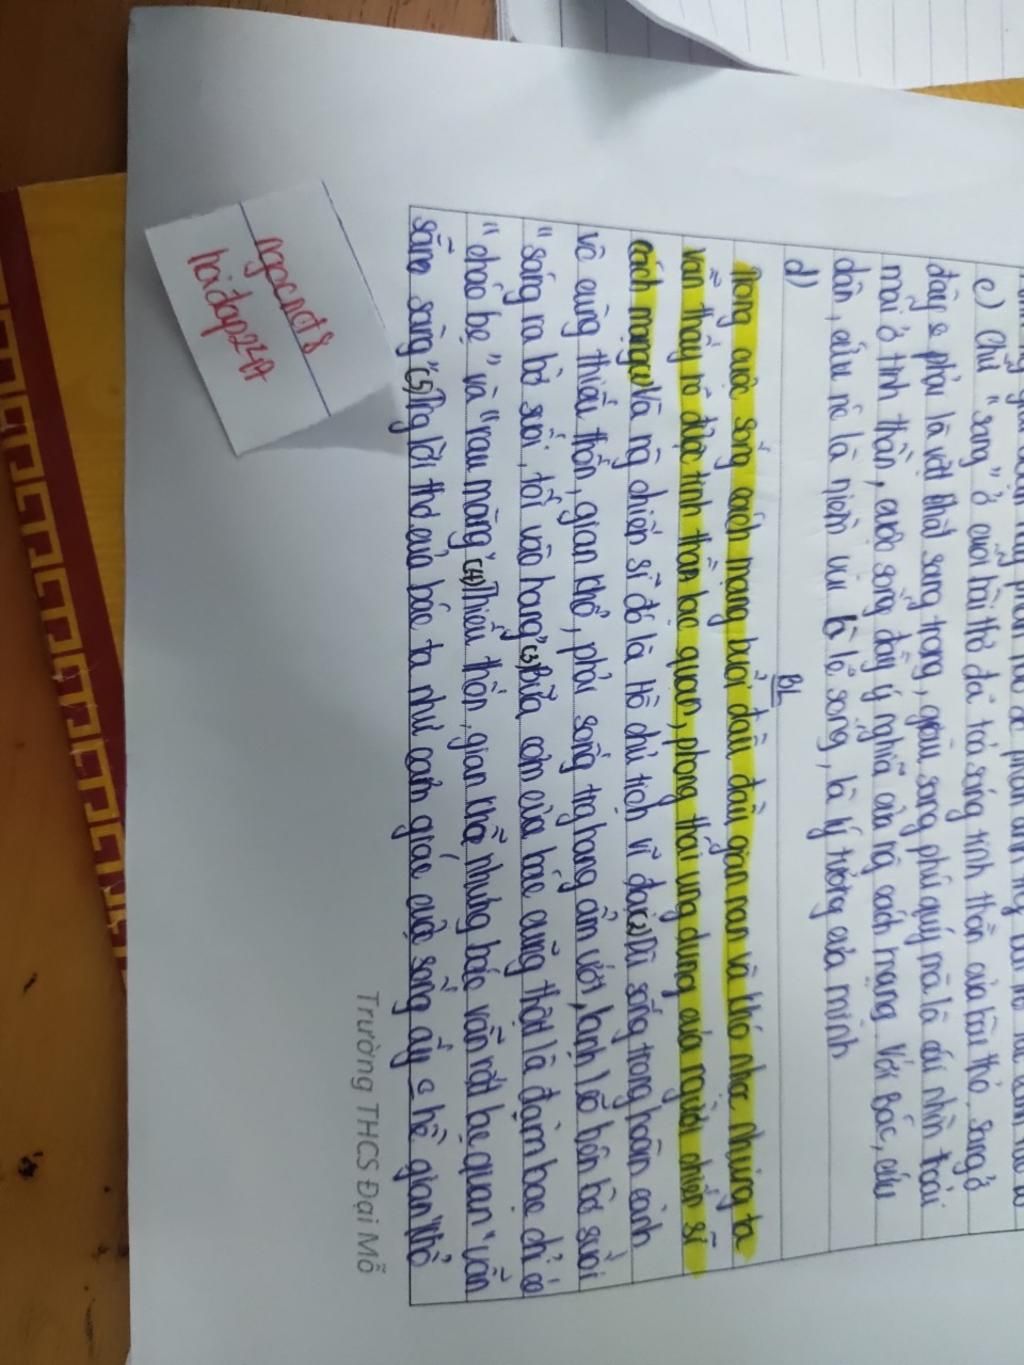 c) Chữ "sang" ở cuối bài thơ đã toả sáng tinh thần của bài thơ, sang ở
đây o phải là vật chất sang trọng, giàu sang phú quý mà là cái nhìn thoải
mái ở tinh thần, cuộc sống đầy ý nghĩa của ng cách mạng. Với Bác, cứu
dân, cứu nc là niềm vui là lẽ sống, là lý tưởng của mình
d)
BL
Trong cuộc sống cách mạng buổi đầu đầy gian nan và khó nhọc nhưng ta
vẫn thấy rõ được tinh thần lạc quan, phong thái ung dung của người chiến sĩ
cách mạng(1) Và ng chiến sĩ đó là Hồ chủ tịch vĩ đại(2)Dù sống trong hoàn cảnh
vô cùng thiếu thốn, gian khổ, phải sống trg hang ẩm ướt, lạnh lẽo bên bờ suối
"sáng ra bờ suối, tối vào hang"(3)Bữa cơm của bác cũng thật là đạm bạc chỉ có
"cháo bẹ" và "rau măng"(4)Thiếu thốn, gian khổ nhưng bác vẫn rất lạc quan "vẫn
sẵn sàng"(5)Trg lời thơ của bác ta như cảm giác cuộc sống ấy o hề gian khổ
Trường THCS Đại Mỗ
ngocnct8
hoidap247